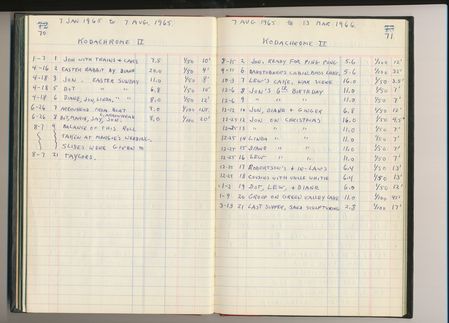 7 JAN 1965 TO 7 AUG. 1965
70.
KODACHROME II
1-7 1 JON WITH TRAINS & CARS 7.5 1/50 10'
4-16 2 EASTER RABBIT BY DIANE 1/50 4'
4-18 3 JON. EASTER SUNDAY 11.0 1/50 8'
4-18 5 DOT " " 6.8 1/50 10'
4-18 6 DIANE, JON, LINDA, " " 8.0 1/50 12'
6-26 7 FROM BURT 8.0
6-26 8 JAY, JON. 8.0 1/100 20'
8-7 9 BALANCE OF THIS ROLL
TAKEN AT MARGIE'S WEDDING.
SLIDES WERE GIVEN TO
8-7 21 TAYLORS.
7 AUG 1965 TO 13 MAR 1966
71.
KODACHROME II
8-15 2 JON, READY FOR PING PONG 5.6 1/100 12'
9-11 6 CABIN, BASS LAKE 5.6 1/100 32'
10-3 7 LEW'S CAKE, 16.0 1/50 3.5'
12-6 8 JON'S 6TH BIRTHDAY 11.0 1/50 7'
12-6 9 " " " 11.0 1/50 7'
12-12 10 JON, DIANE & GINGER 6.8 1/50 12'
12-25 12 JON ON CHRISTMAS 16.0 1/50 4.5'
12-25 13 " " " 11.0 1/50 7'
12-25 14 LINDA " " 11.0 1/50 7'
12-25 15 DIANE " " 11.0 1/50 7'
12-25 16 LEW " " 11.0 1/50 7'
12-25 17 ROBERTSON'S & IN-LAWS 6.4 1/50 13'
12-25 18 COUSINS WITH UNCLE WHITIE 6.4 1/50 13'
1-2 19 DOT, LEW, & DIANE 1/50 12'
1-9 20 GROUP ON GREEN VALLEY LAKE 11.0 1/100
3-13 21 LAST SUPPER, SAND SCULPTURING 2.8 1/100 17'